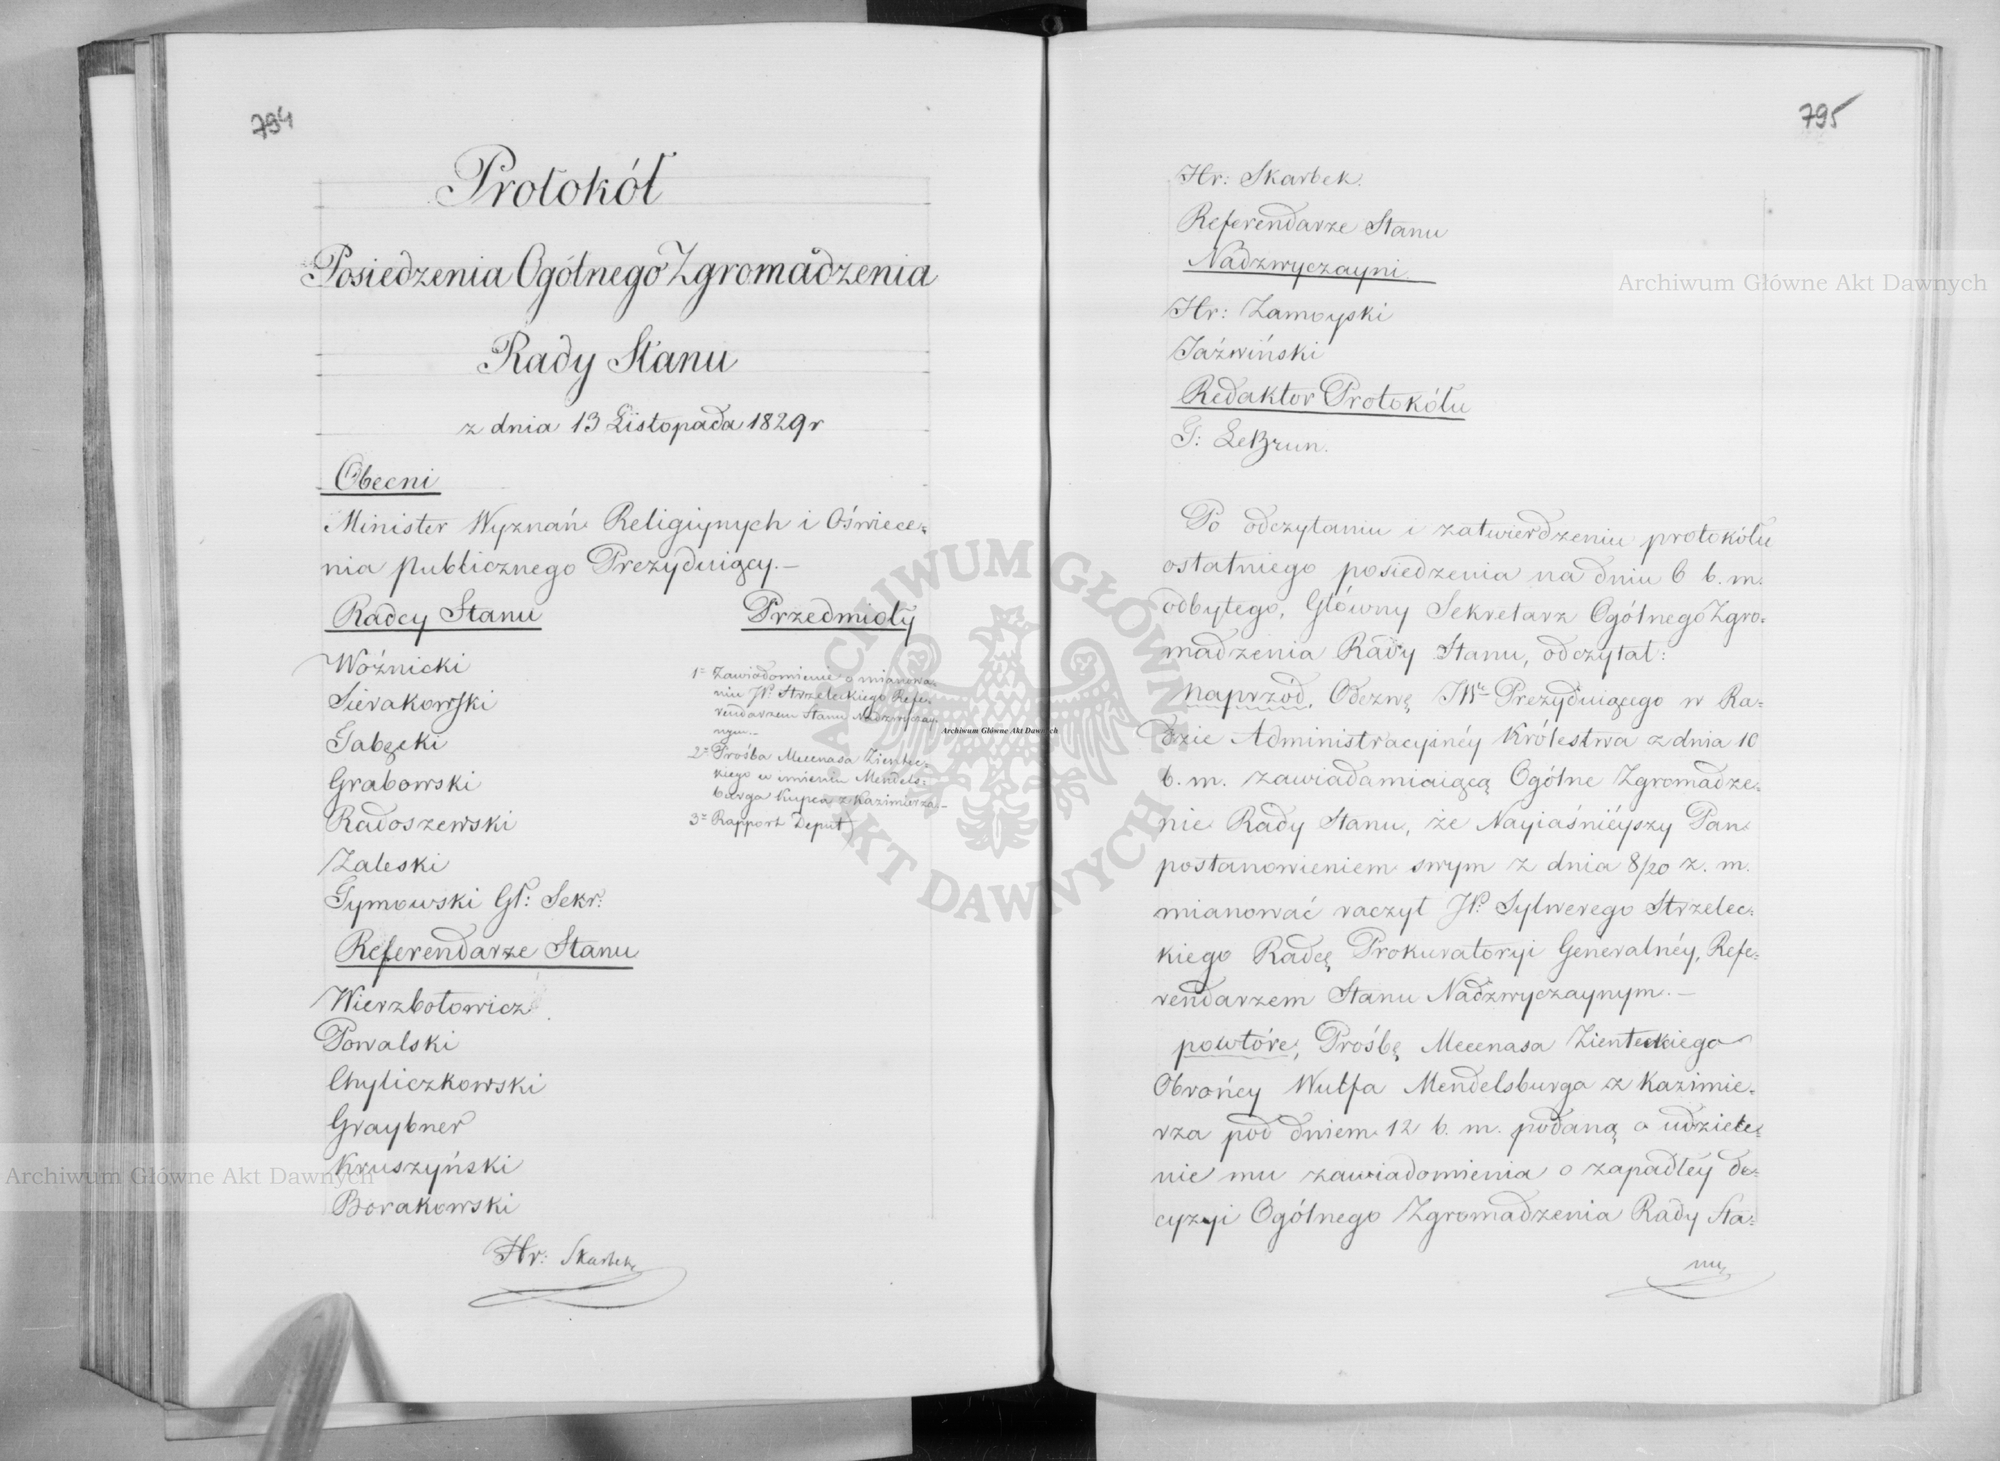 794
Protokół
Posiedzenia Ogólnego Zgromadzenia
Rady Stanu
z dnia 13 Listopada 1829 r
Obecni
Minister Wyznań Religiynych i Oświece=
nia publicznego Prezyduiący.—
Radcy Stanu
Woźnicki
Sierakowski
Gabęcki
Grabowski
Radoszewski
Zaleski
Tymowski Gł: Sekr:
Referendarze Stanu
Wierzbołowicz
Powalski
Chyliczkowski
Graybner
Kruszyński
Borakowski
Hr: Skarbek
Przedmioty
1= Zawiadomienie o mianowa=
niu JP. Strzeleckiego Refe=
rendarzem Stanu Nadzwyczay=
nym.—
2= Prośba Mecenasa Zientec=
kiego w imieniu Mendels=
burga Kupca z Kazimierza.—
3= Rapport Deput)
795
Hr: Skarbek.
Referendarze Stanu
Nadzwyczayni
Hr: Zamoyski
Jaźwiński
Redaktor Protokółu
G: LeBrun.
Po odczytaniu i zatwierdzeniu protokółu
ostatniego posiedzenia na dniu 6 b. m.
odbytego, Główny Sekretarz Ogólnego Zgro=
madzenia Rady Stanu, odczytał:
naprzod, Odezwę JW° Prezyduiącego w Ra=
dzie Administracyinéy Królestwa z dnia 10
b. m. zawiadamiaiącą Ogólne Zgromadze=
nie Rady Stanu, że Nayiaśnieyszy Pan
postanowieniem swym z dnia 8/20 z. m.
mianować raczył JP. Sylwerego Strzelec=
kiego Radcę Prokuratoryi Generalnéy, Refe=
rendarzem Stanu Nadzwyczaynym.—
powtóre, Prośbę Mecenasa Zienteckiego
Obrońcy Wulfa Mendelsburga z Kazimie=
rza pod dniem 12 b. m. podaną o udziele=
nie mu zawiadomienia o zapadłey de=
cyzyi Ogólnego Zgromadzenia Rady Sta=
nu,
Archiwum Główne Akt Dawnych
Archiwum Główne Akt Dawnych
Archiwum Główne Akt Dawnych
ARCHIWUM GŁÓWNE AKT DAWNYCH